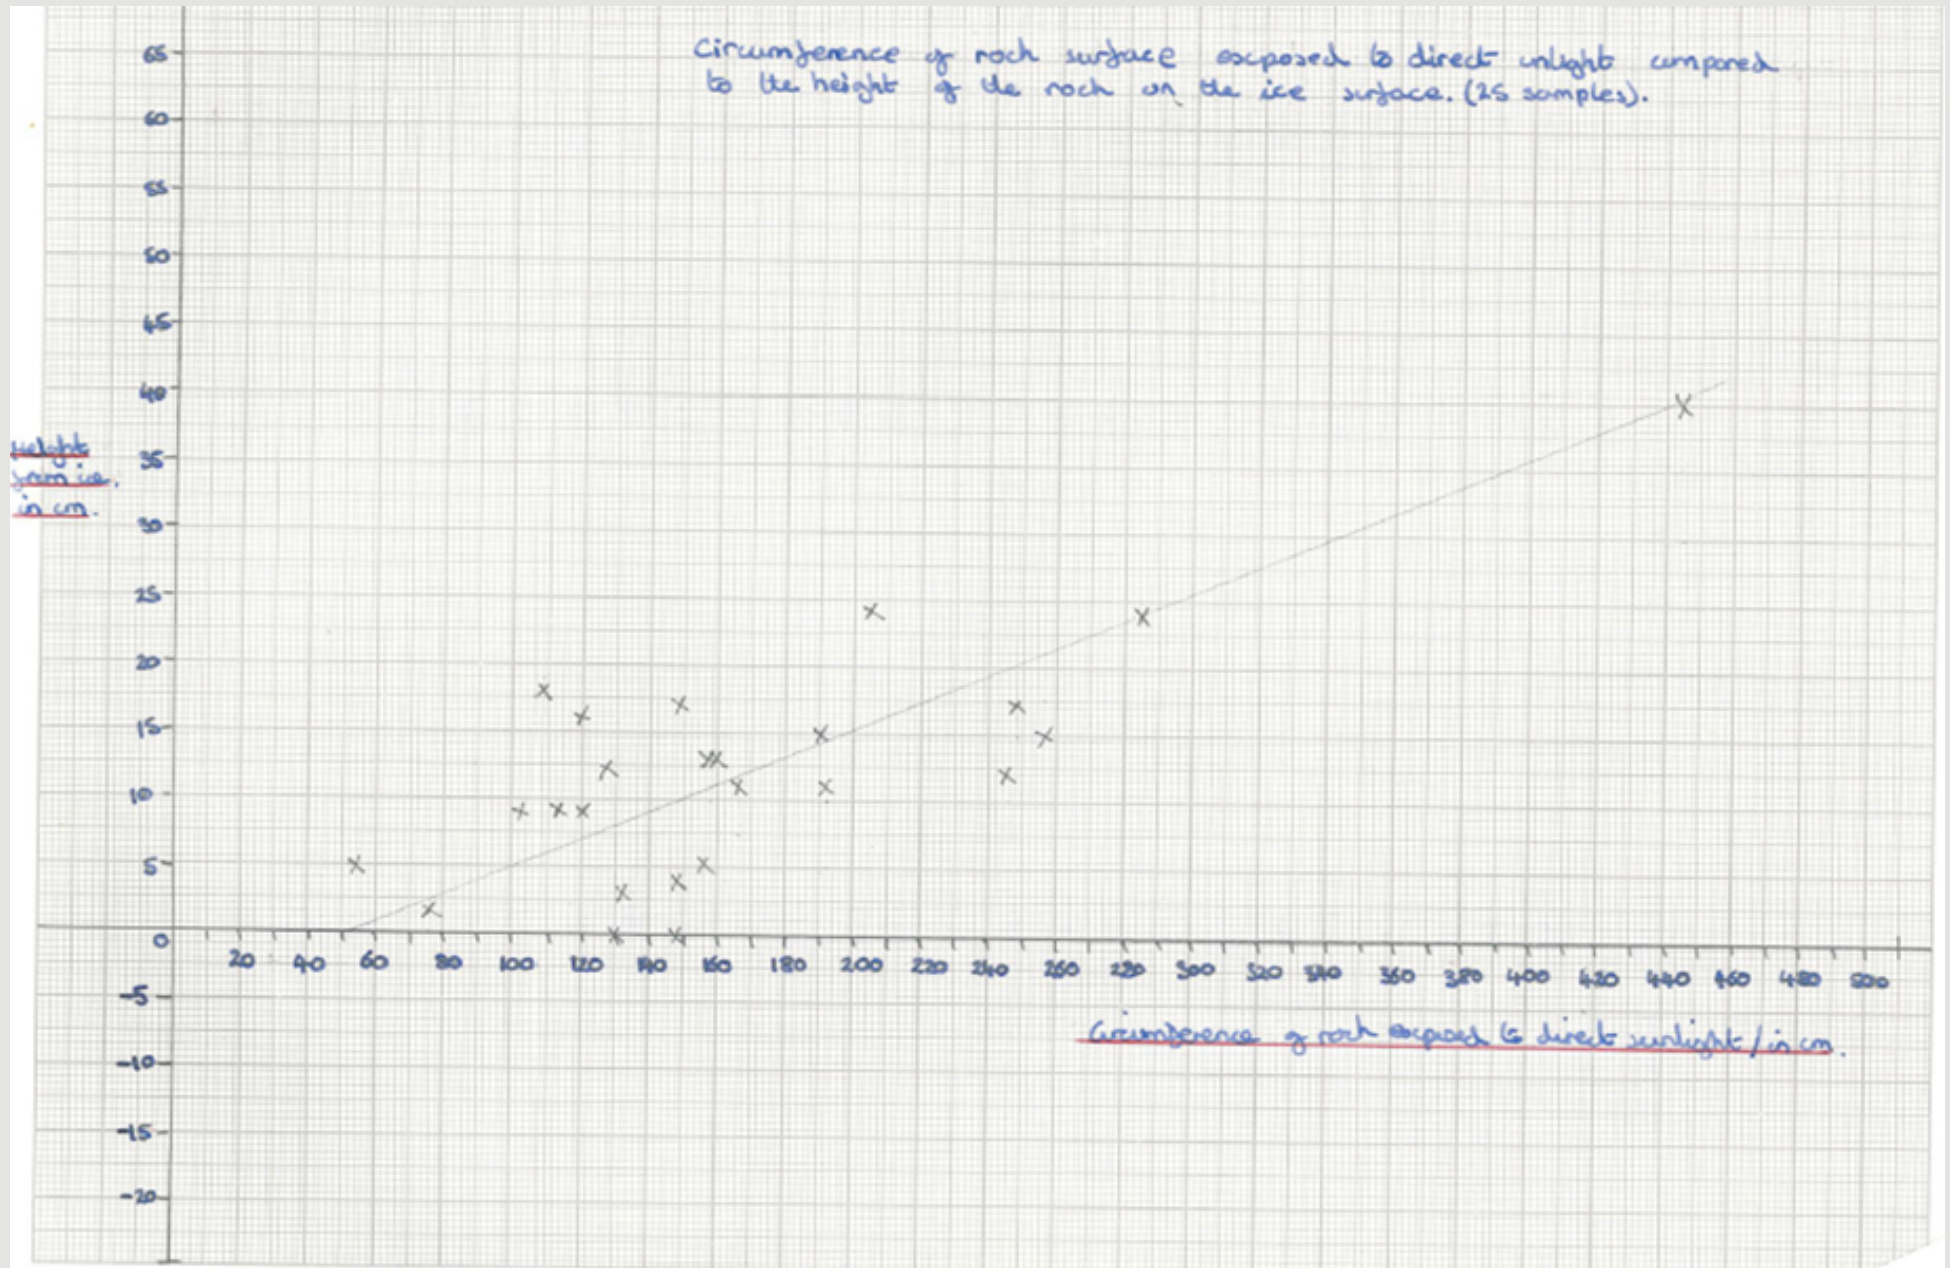 65
Circumference of rock surface exposed to direct unlight compared
to the height of the rock on the ice surface. (25 samples).
60
55
50
45
40
Height
from ice.
in cm.
35
30
25
20
15
10
5
0
20 40 60 80 100 120 140 160 180 200 220 240 260 220 300 320 340 360 380 400 420 440 460 480 500
-5
Circumference of rock exposed to direct sunlight / in cm.
-10
-15
-20